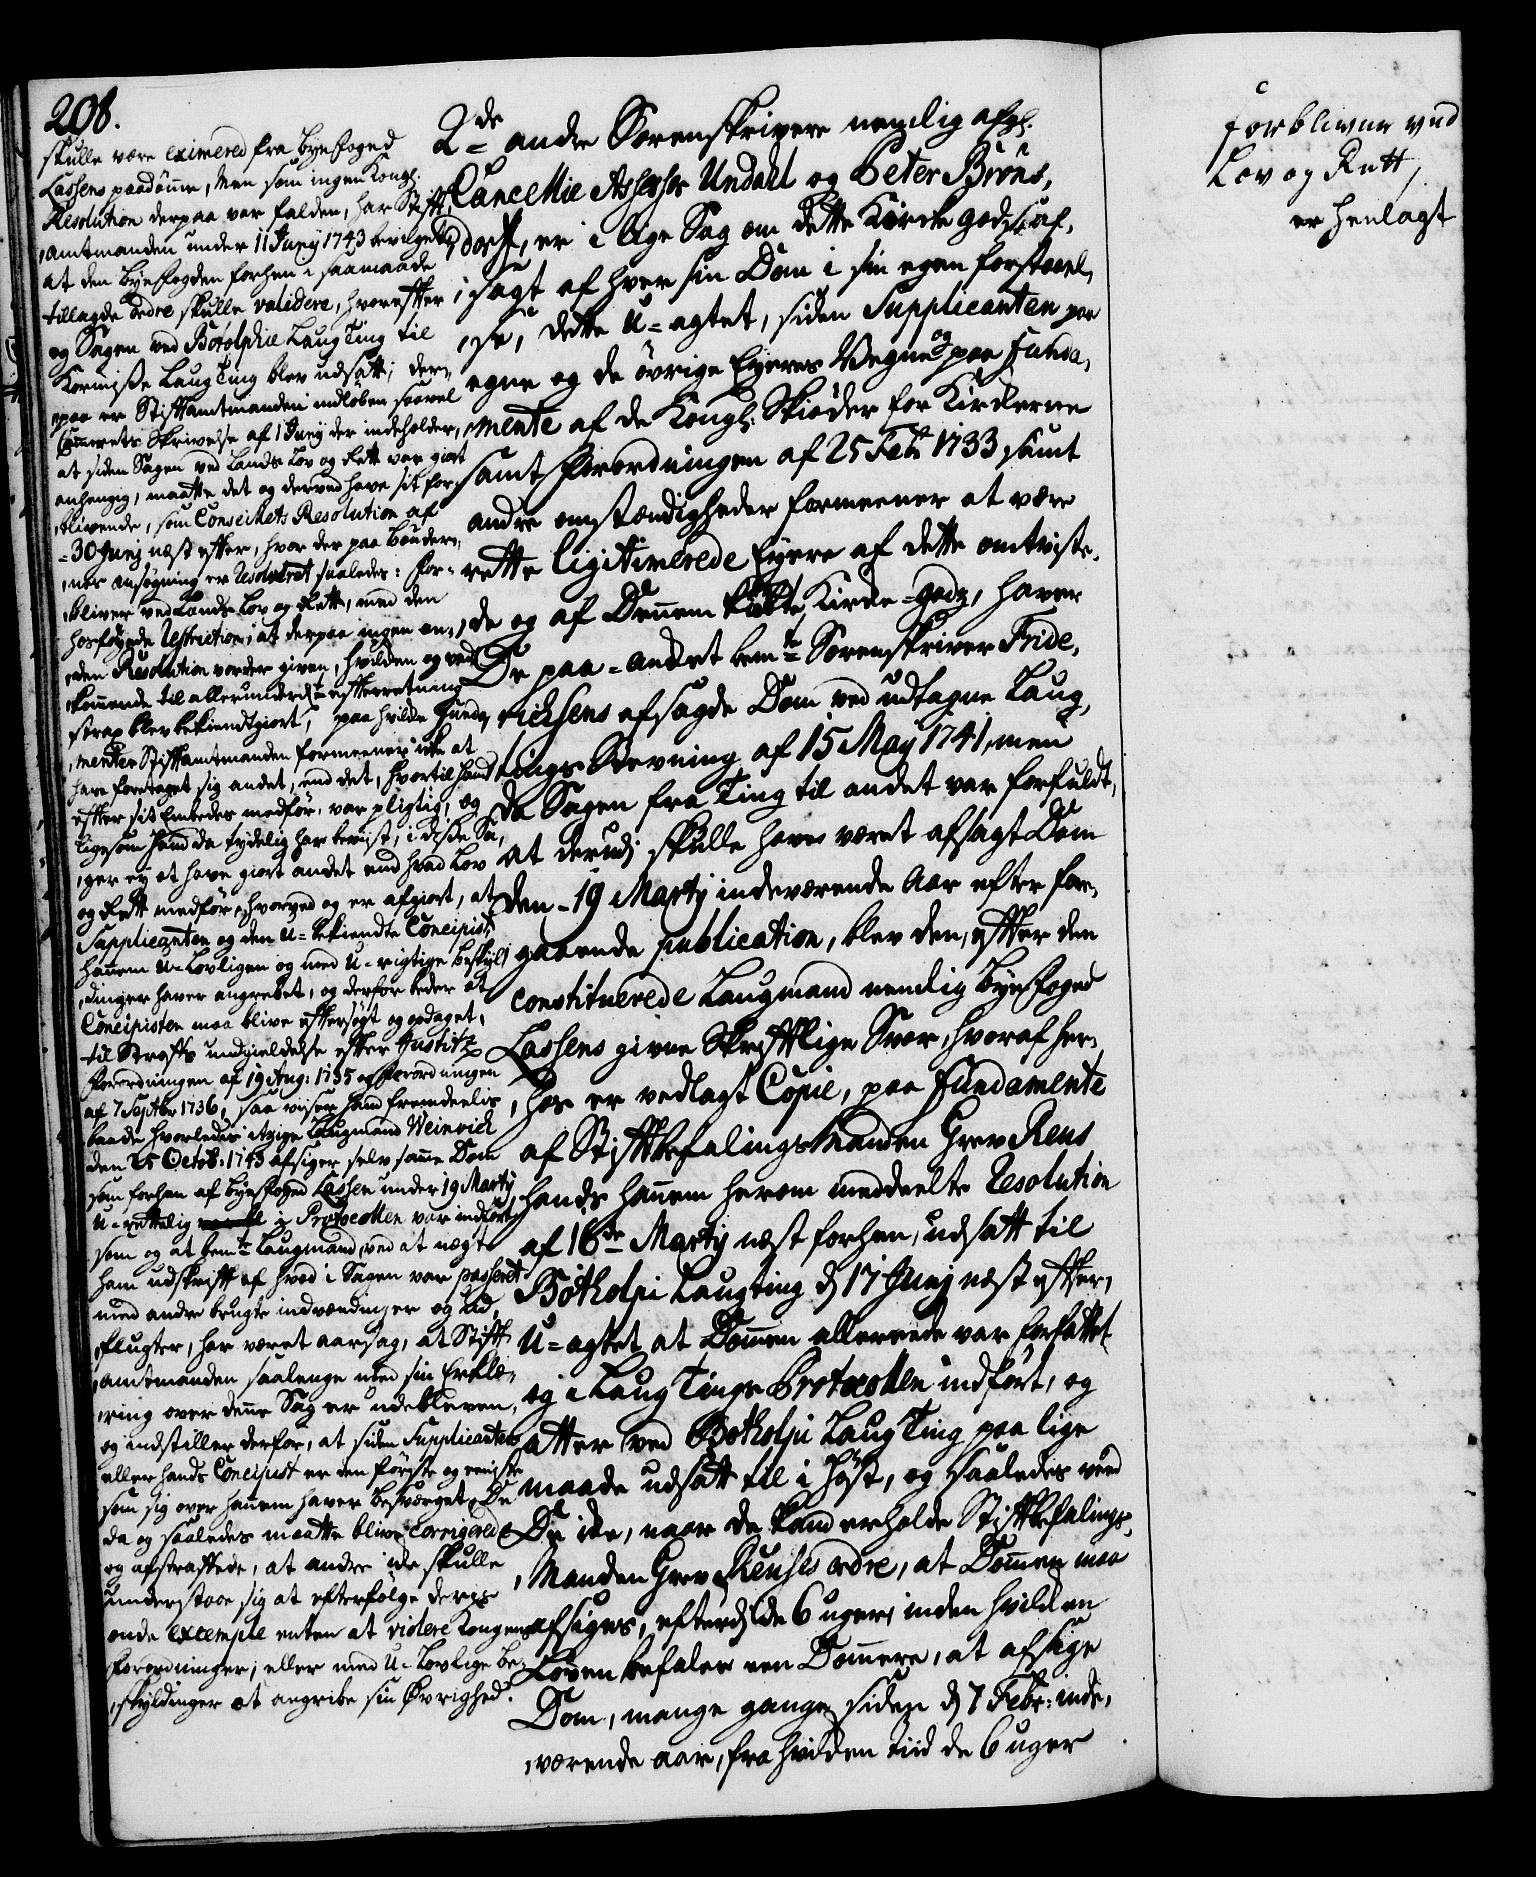 208.
skulle være eximered fra Byefoged
Lassens paadømme, Men som ingen Kongl:
Resolution derpaa var falden, har Stift,
,amtmanden under 11 Junij 1743 bevilget
at den Byefogden forhen i saamaade
tillagde Ordre skulle validere, hvorefter
og Sagen ved Botolphie LaugTing til
Kormisse LaugTing blev udsatt; der,
,paa er Stiftamtmanden indløben saavel
Cammerets Skrivelse af 1 Junij der indeholder,
at siden Sagen ved Lands Lov og Rett var giort
anhengig, maatte det og derved have sit for,
,blivende, som Conseillets Resolution af
30 Junij næst efter, hvor der paa Bønder,
,nes ansøgning er Resolveret saaledes: For-
bliver ved Lands Lov og Rett, med den
hosføyede Restriction, at derpaa ingen an,
,den Resolution vorder given, hvilken og ved,
kommende til allerunderd:te efterretning
strax blev bekiendtgiort, paa hvilke Funda,
,menter Stiftamtmanden formeener icke at
have foretaget sig andet, end det, hvortil hand
efter sit Embedes medfør, var pligtig, og
ligesom hand da tydelig har beviist, i disse Sa,
,ger ey at have giort andet end hvad Lov
og Rett medfør, hvorved og er afgiort, at
Supplicanten og den U-bekiendte Concipist,
hannem U-Lovligen og med U-rigtige beskyl,
,dinger haver angrebet, og derfor beder at
Concipisten maa blive eftersøgt og opdaget,
til Straffs undgieldelse efter Justitz
Forordningen af 19 Aug: 1735 og Forordningen
af 7 Septbr 1736, saa viiser hand fremdeelis
baade hvorledes itzige Laugmand Weinvich
den 25 Octob: 1743 afsiger selv samme Dom
som forhen af Byefoged Lassen under 19 Martij
U-rettelig i Protocollen var indført,
som og at bem:te Laugmand, ved at negte
ham udskrift af hvad i Sagen var passeret
med andre brugte indvendinger og Ud,
,flugter, har været aarsag, at Stift
,amtmanden saalenge med sin Erklæ,
,ring over denne Sag er udebleven,
og indstiller derfor, at siden Supplicanten
eller hands Concipist er den første og eeniste
som sig over hannem haver besværget, De
da og saaledes maatte blive Corrigerede
og afstraffede, at andre icke skulle
understaae sig at efterfølge deres
onde exemple enten at violere Kongens
Forordninger, eller med U-Lovlige be,
,skyldinger at angribe sin Øvrighed.
2de andre Sorenskrivere nemlig afg:
Cancellie Assessor Undall og Peter Bröns,
,dorff, er i lige Sag om dette Kircke gods af,
,sagt af hver sin Dom i sin egen forstaael,
,se, dette U-agtet, siden Supplicanten paa
egne og de øvrige Eyeres Vegne og paa Funda,
,mente af de Kongl: Skiøder for Kirckerne
samt Forordningen af 25 Febr: 1733 samt
andre omstændigheder formeener at være
rette ligitimerede Eyere af dette omtviste,
,de og af Dennem kiøbte Kircke-godz, haver
De paa-anket bem:te Sorenskriver Fride,
,richsens afsagde Dom ved udtagne Laug,
,tings Stevning af 15 May 1741, men
da Sagen fra Ting til andet var forfuldt,
at derudj skulle haves været afsagt Dom
den 19 Martij indeværende Aar efter for,
,gaaende publication, blev den, efter den
constituerede Laugmand nemlig Byefoged
Lassens givne Skrifftlige Svar, hvoraf her,
,hos er vedlagt Copie, paa Fundamente
af Stiftbefalingsmanden Grev Rens
hands hannem herom meddeelte Resolution
af 16de Martij næst forhen, udsatt til
Botholpi Laugting d: 17 Junij næst efter,
U-agtet at Dommen allereede var forfattet
og i Laug Tings Protocollen indført, og
atter ved Botholpi LaugTing paa lige
maade udsatt til i høst, og saaledes veed
De icke, naar de kand erholde Stiftbefalings,
,Manden Grev Reuses ordre, at Dommen maa
afsiges, efterdj de 6 uger, inden hvilcken
Loven befaler een Dommere, at afsige
Dom, mange gange siden d: 7 Febr: inde,
,værende aar, fra hvilcken tiid de 6 uger
forbliver ved
Lov og Rett,
er henlagt